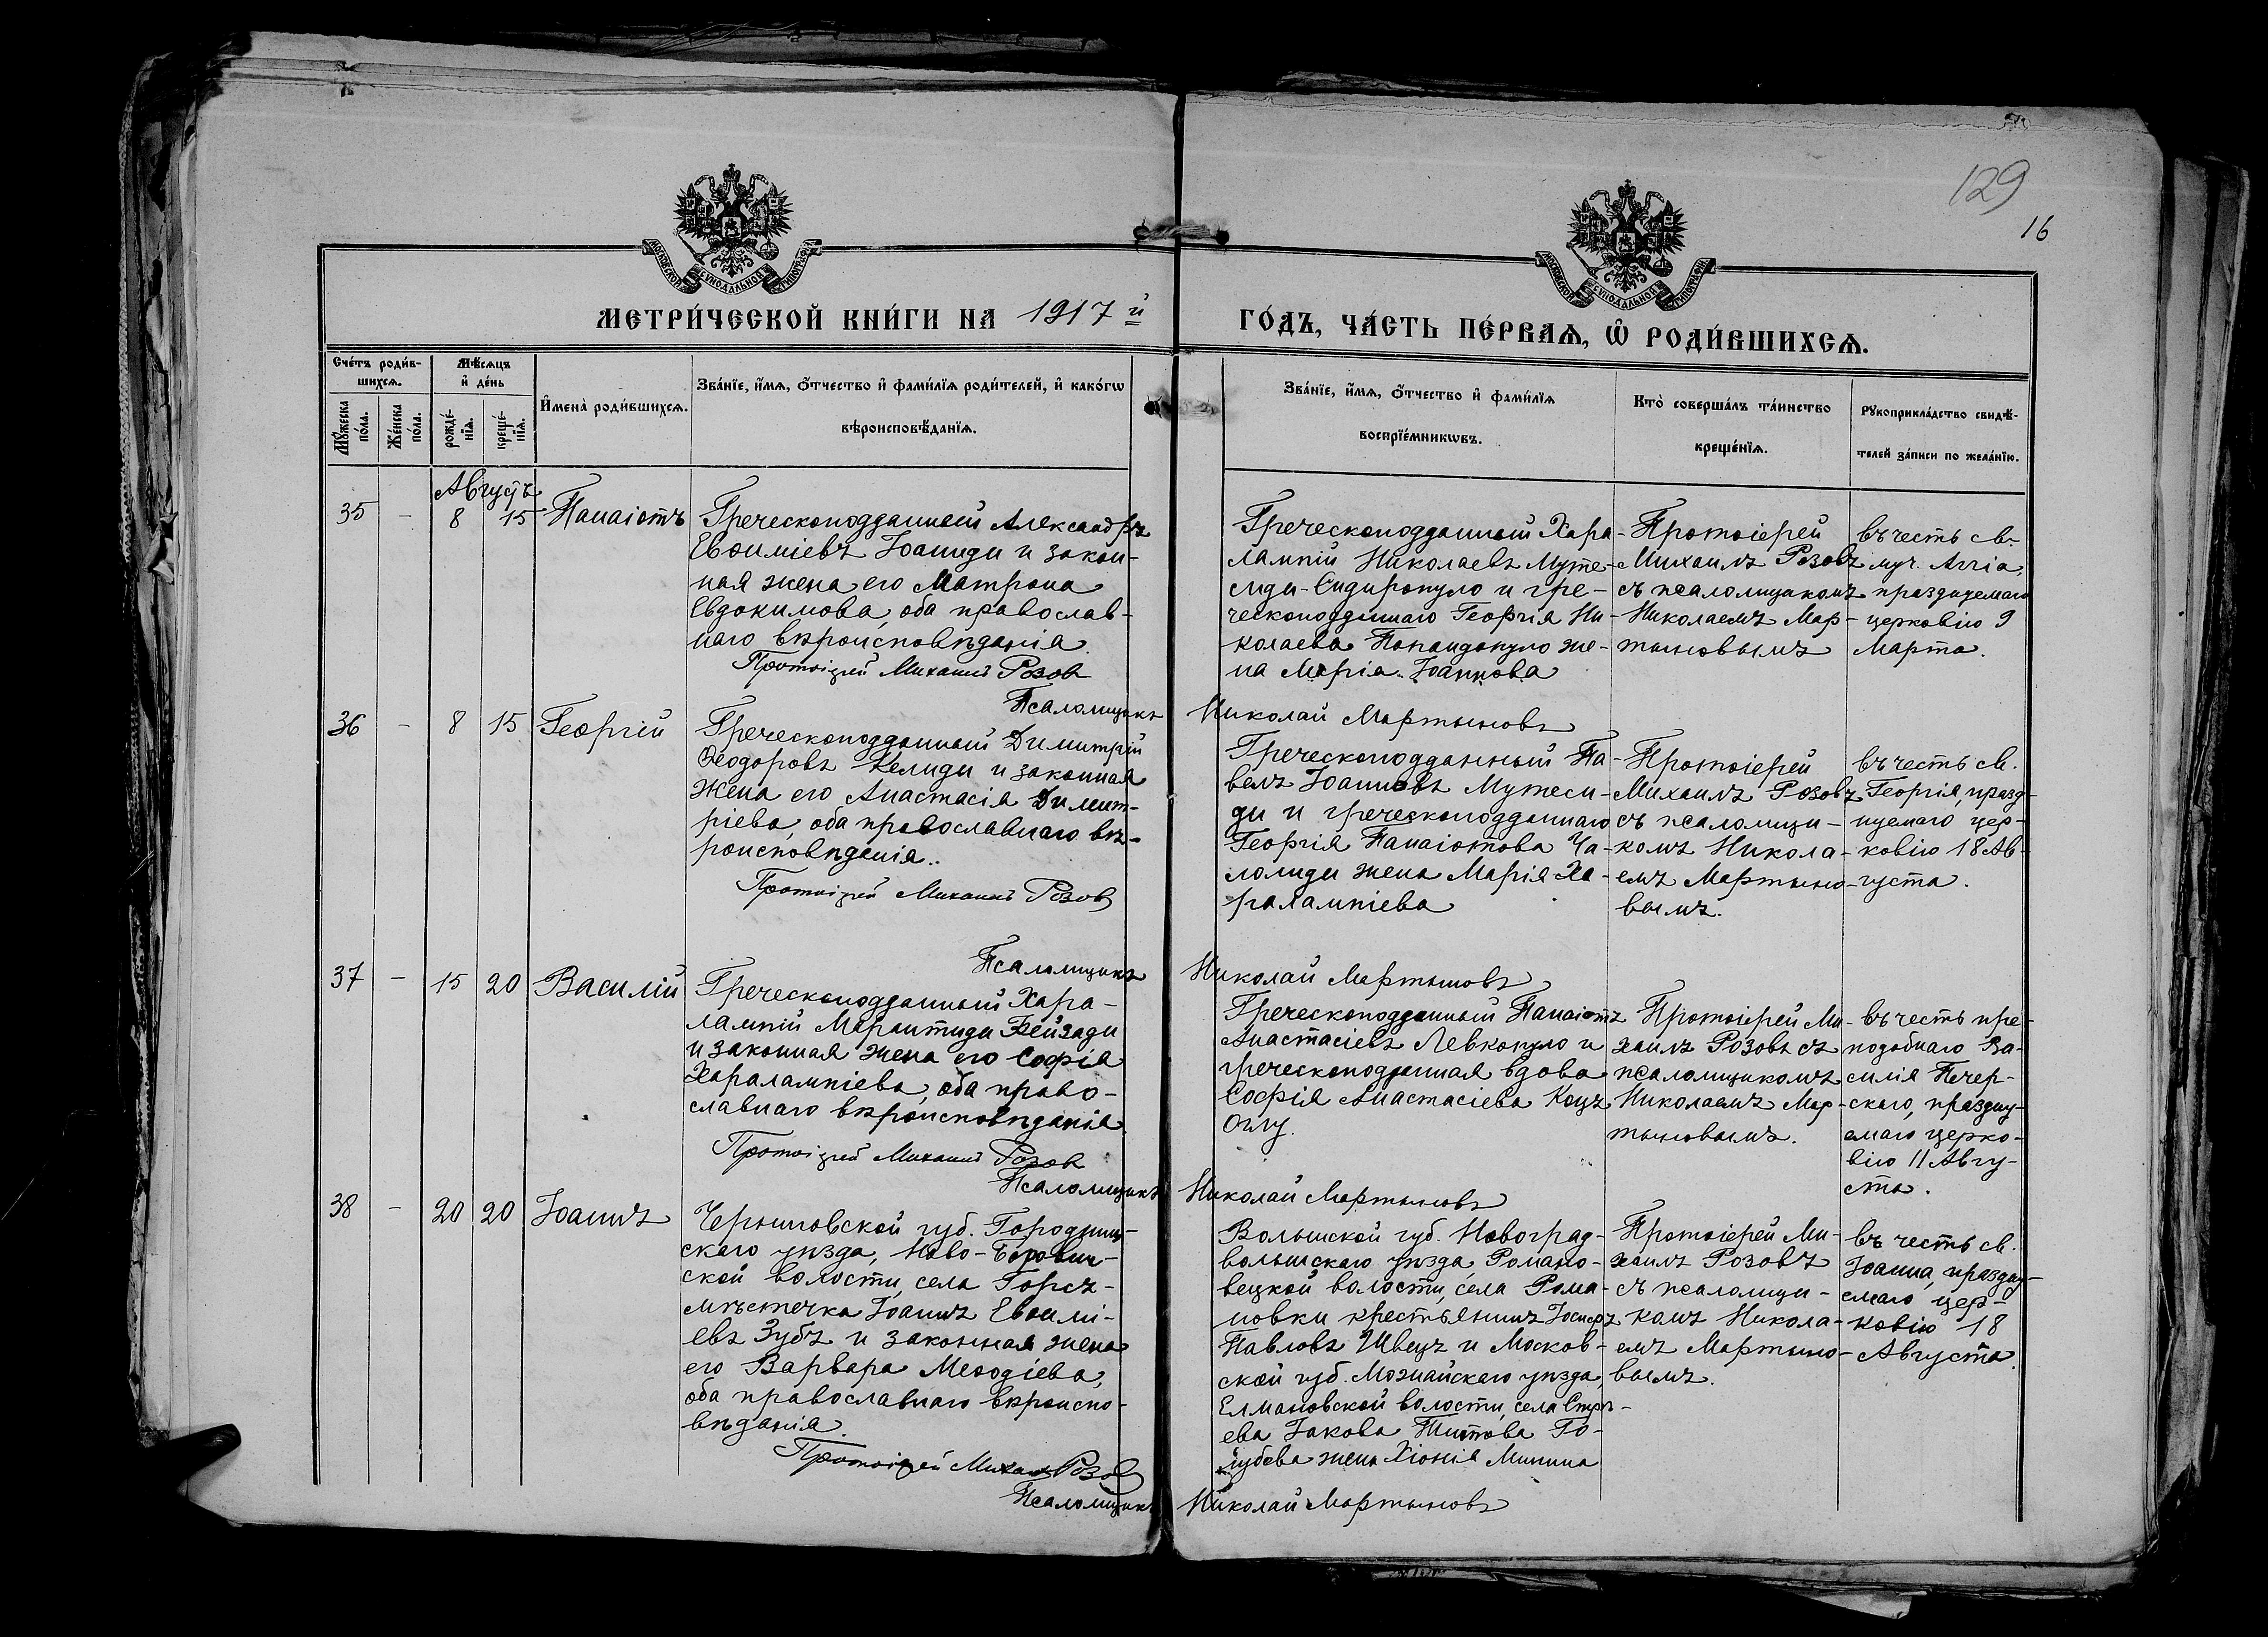 129
16
МОСКОВСКОЙ СѴНОДАЛЬНОЙ ТИПОГРАФІИ
МОСКОВСКОЙ СѴНОДАЛЬНОЙ ТИПОГРАФІИ
МЕТРИ́ЧЕСКОЙ КНИ́ГИ НА 1917 й
ГО́ДЪ, ЧА́СТЬ ПЕ́РВАѦ, Ѽ РОДИ́ВШИХСѦ.
Сче́тъ роди́в-
шихсѧ.
Мꙋ́жеска по́ла.
Же́нска по́ла.
Мѣ́сѧцъ
и҆ де́нь
рожде́-
нїѧ.
креще́-
нїѧ.
И҆мена̀ роди́вшихсѧ.
Зва́нїе, и҆́мѧ, ѻ҆́тчество и҆ фами́лїѧ роди́телей, и҆ како́гѡ
вѣроисповѣ́данїѧ.
Зва́нїе, и҆́мѧ, ѻ҆́тчество и҆ фами́лїѧ
воспрїе́мникѡвъ.
Кто̀ соверша́лъ та́инство
креще́нїѧ.
Рꙋкоприкла́дство свидѣ́-
телей за́писи по жела́нїю.
Августъ
35 - 8 15 Панаіотъ
Греческоподданный Александръ
Евѳиміевъ Іоаниди и закон-
ная жена его Матрона
Евдокимова, оба православ-
наго вѣроисповѣданія.
Протоіерей Михаилъ Розов
Греческоподданный Хара-
лампій Николаевъ Муте-
сиди-Сидиропуло и гре-
ческоподданнаго Георгія Ни-
колаева Папандопуло же-
на Марія Іоаннова
Протоіерей
Михаилъ Розовъ
съ псаломщикомъ
Николаемъ Мар-
тыновымъ
въ честь св.
муч.
празднуемаго
церковію 9
Марта.
Псаломщикъ Николай Мартыновъ
36 - 8 15 Георгій
Греческоподданный Димитрій
Ѳеодоровъ Келиди и законная
жена его Анастасія Димит-
ріева, оба православнаго вѣ-
роисповѣданія.
Протоіерей Михаилъ Розов
Греческоподданный Па-
велъ Іоанновъ Мутеси-
ди и греческоподданнаго
Георгія Панаіотова Ча-
лолиди жена Марія Ха-
ралампіева
Протоіерей
Михаилъ Розовъ
съ псаломщи-
комъ Никола-
емъ Мартыно-
вымъ.
въ честь св.
Георгія, празд-
нуемаго цер-
ковію 18 Ав-
густа.
Псаломщикъ Николай Мартыновъ
37 - 15 20 Василій
Греческоподданный Хара-
лампій Марантиди Бейзади
и законная жена его Софія
Харалампіева, оба право-
славнаго вѣроисповѣданія.
Протоіерей Михаилъ Розов
Греческоподданный Панаіотъ
Анастасіевъ Левкопуло и
греческоподданная вдова
Софія Анастасіева Коцъ
Оглу.
Протоіерей Ми-
хаилъ Розовъ съ
псаломщикомъ
Николаемъ Мар-
тыновымъ.
въ честь пре-
подобнаго Ва-
силія Печер-
скаго, праздну-
емаго церко-
вію 11 Авгу-
ста.
Псаломщикъ Николай Мартыновъ
38 - 20 20 Іоаннъ
Черниговской губ. Городнин-
скаго уѣзда, Ново-Боровин-
ской волости, села Горсъ-
мѣстечка Іоаннъ Евѳимі-
евъ Зубъ и законная жена
его Варвара Меѳодіева,
оба православнаго вѣроиспо-
вѣданія.
Протоіерей Михаилъ Розов
Волынской губ. Новоград-
волынскаго уѣзда, Романо-
вецкой волости, села Рома-
новки крестьянинъ Іосифъ
Павловъ Швецъ и Москов-
ской губ. Можайскаго уѣзда,
Елмановской волости, села Стрѣ-
ева Іакова Титова Го-
лубева жена Хіонія Минина
Протоіерей Ми-
хаилъ Розовъ
съ псаломщи-
комъ Никола-
емъ Мартыно-
вымъ.
въ честь св.
Іоанна, праздну-
емаго цер-
ковію 18
Августа.
Псаломщикъ Николай Мартыновъ